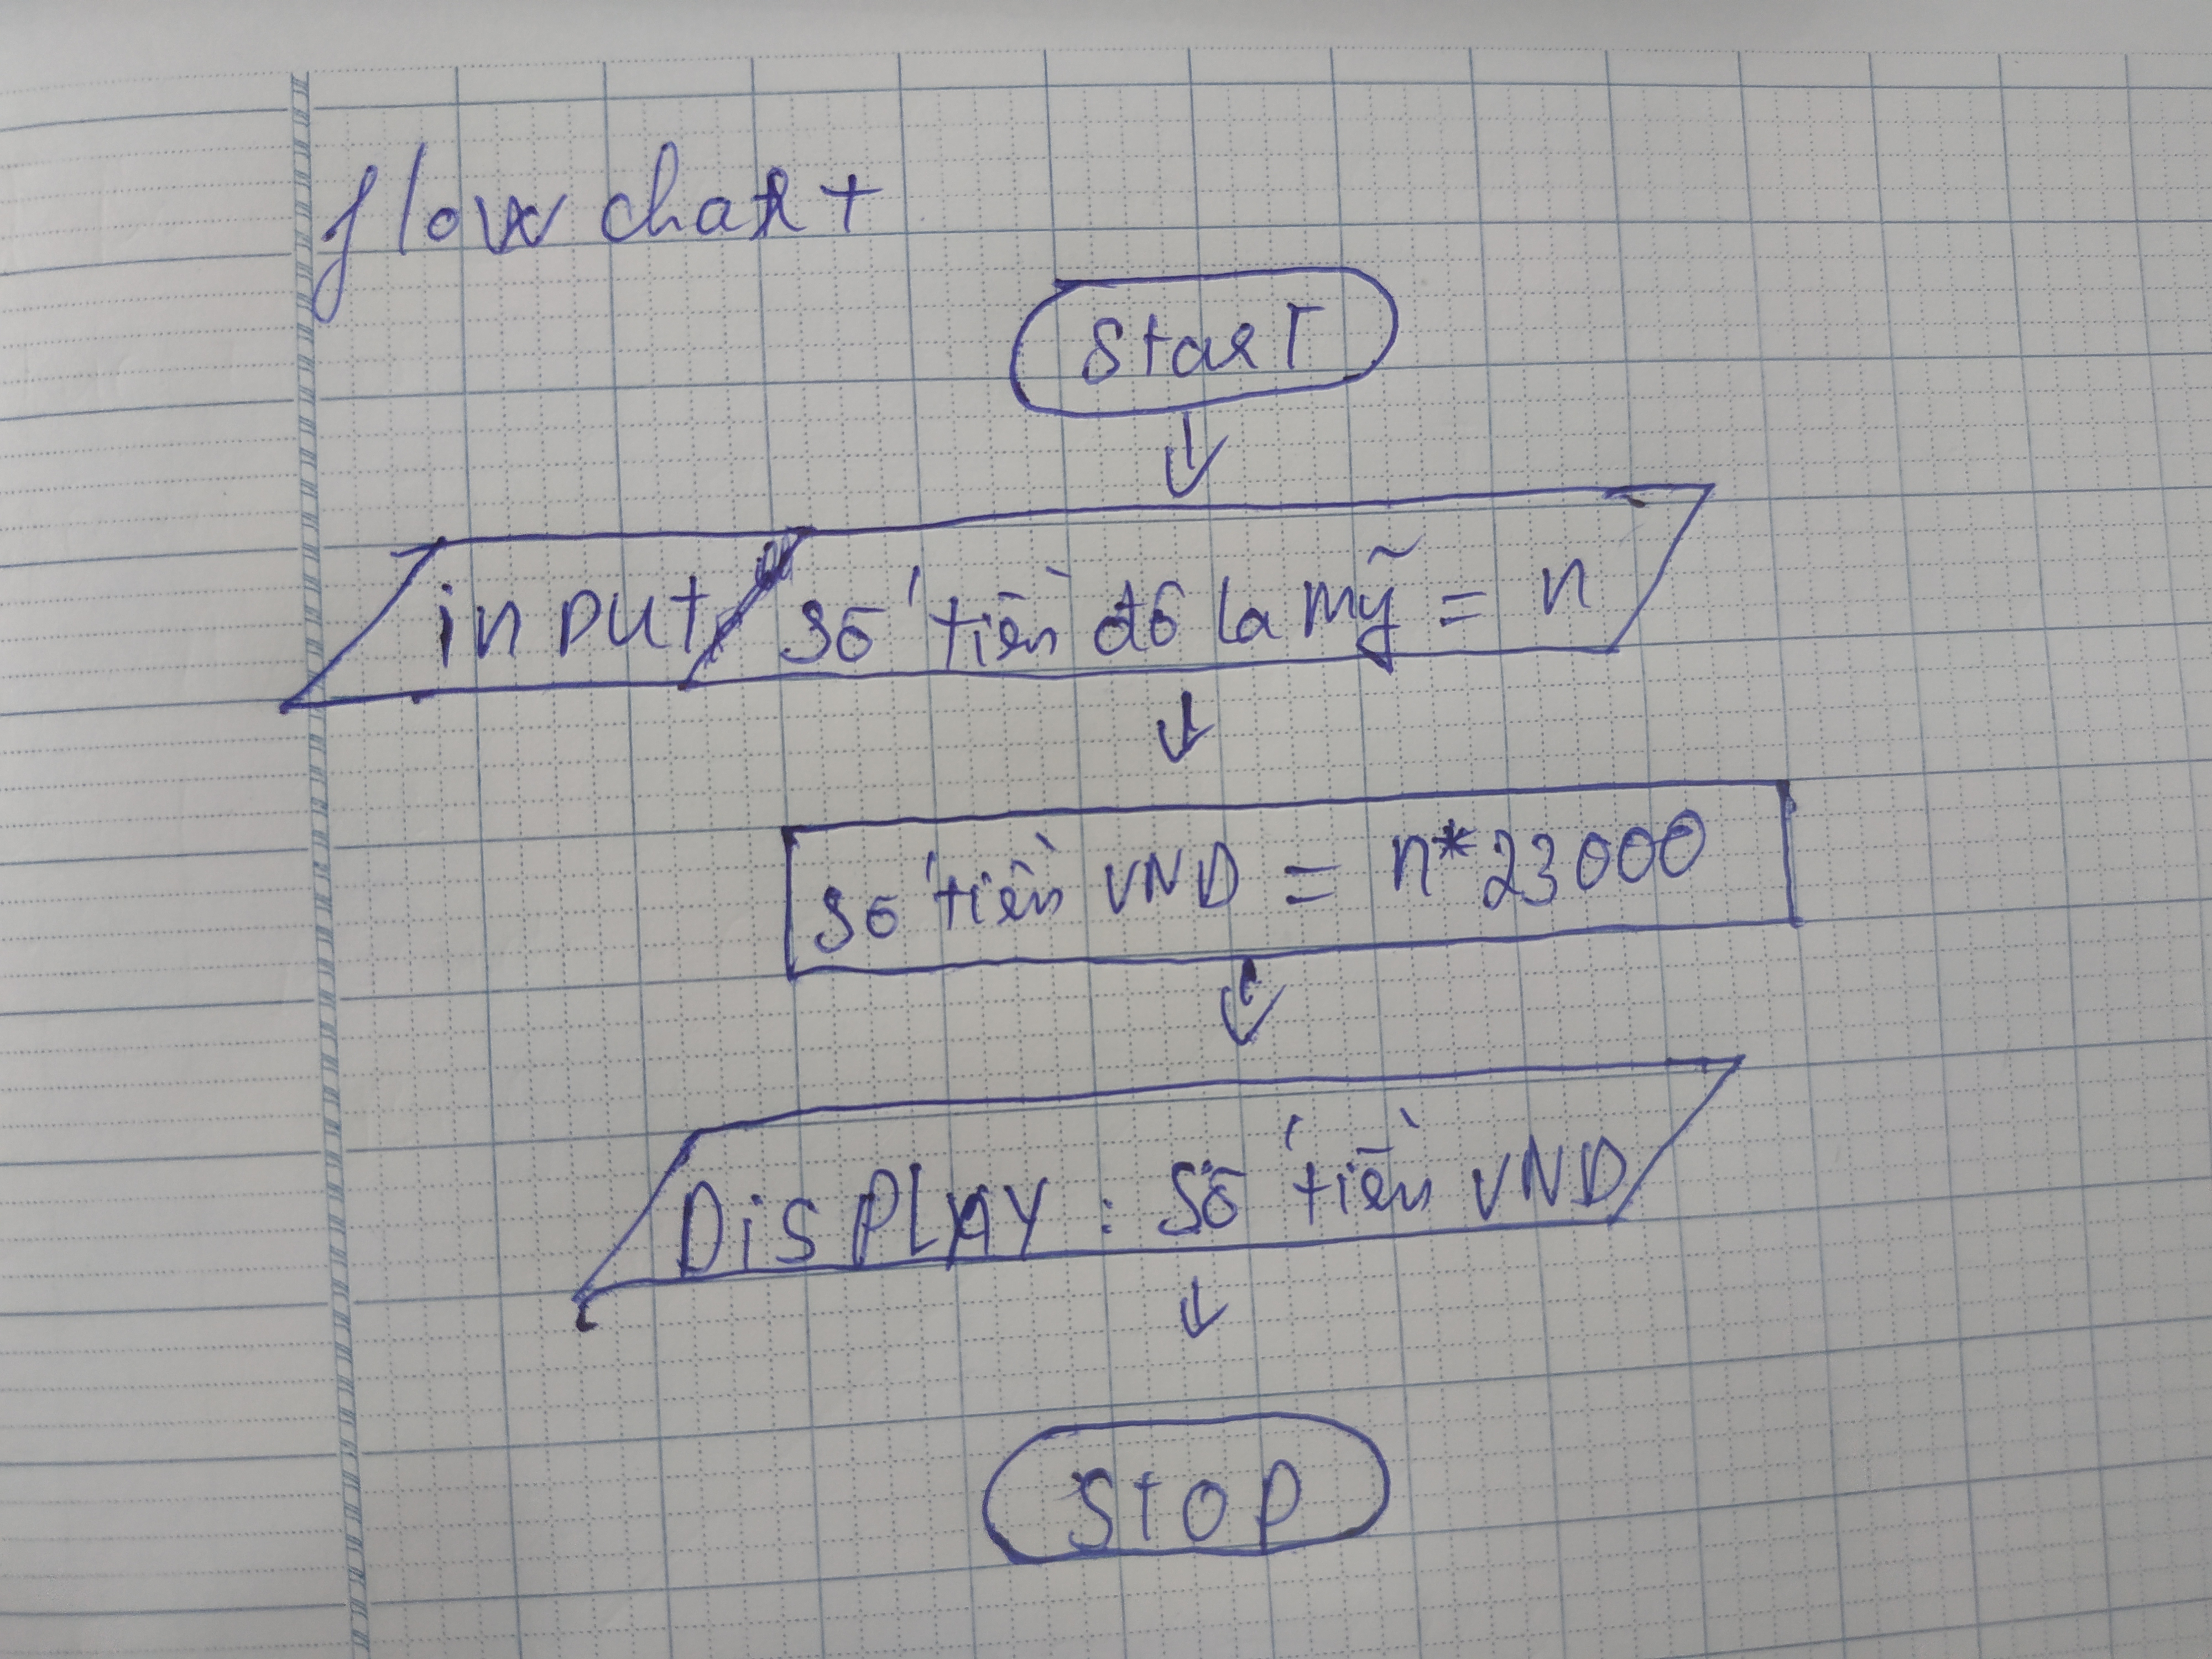 flow chart
Start
input số tiền đô la mỹ = n
số tiền VND = n*23000
DiSPLAY : Số tiền VND
Stop